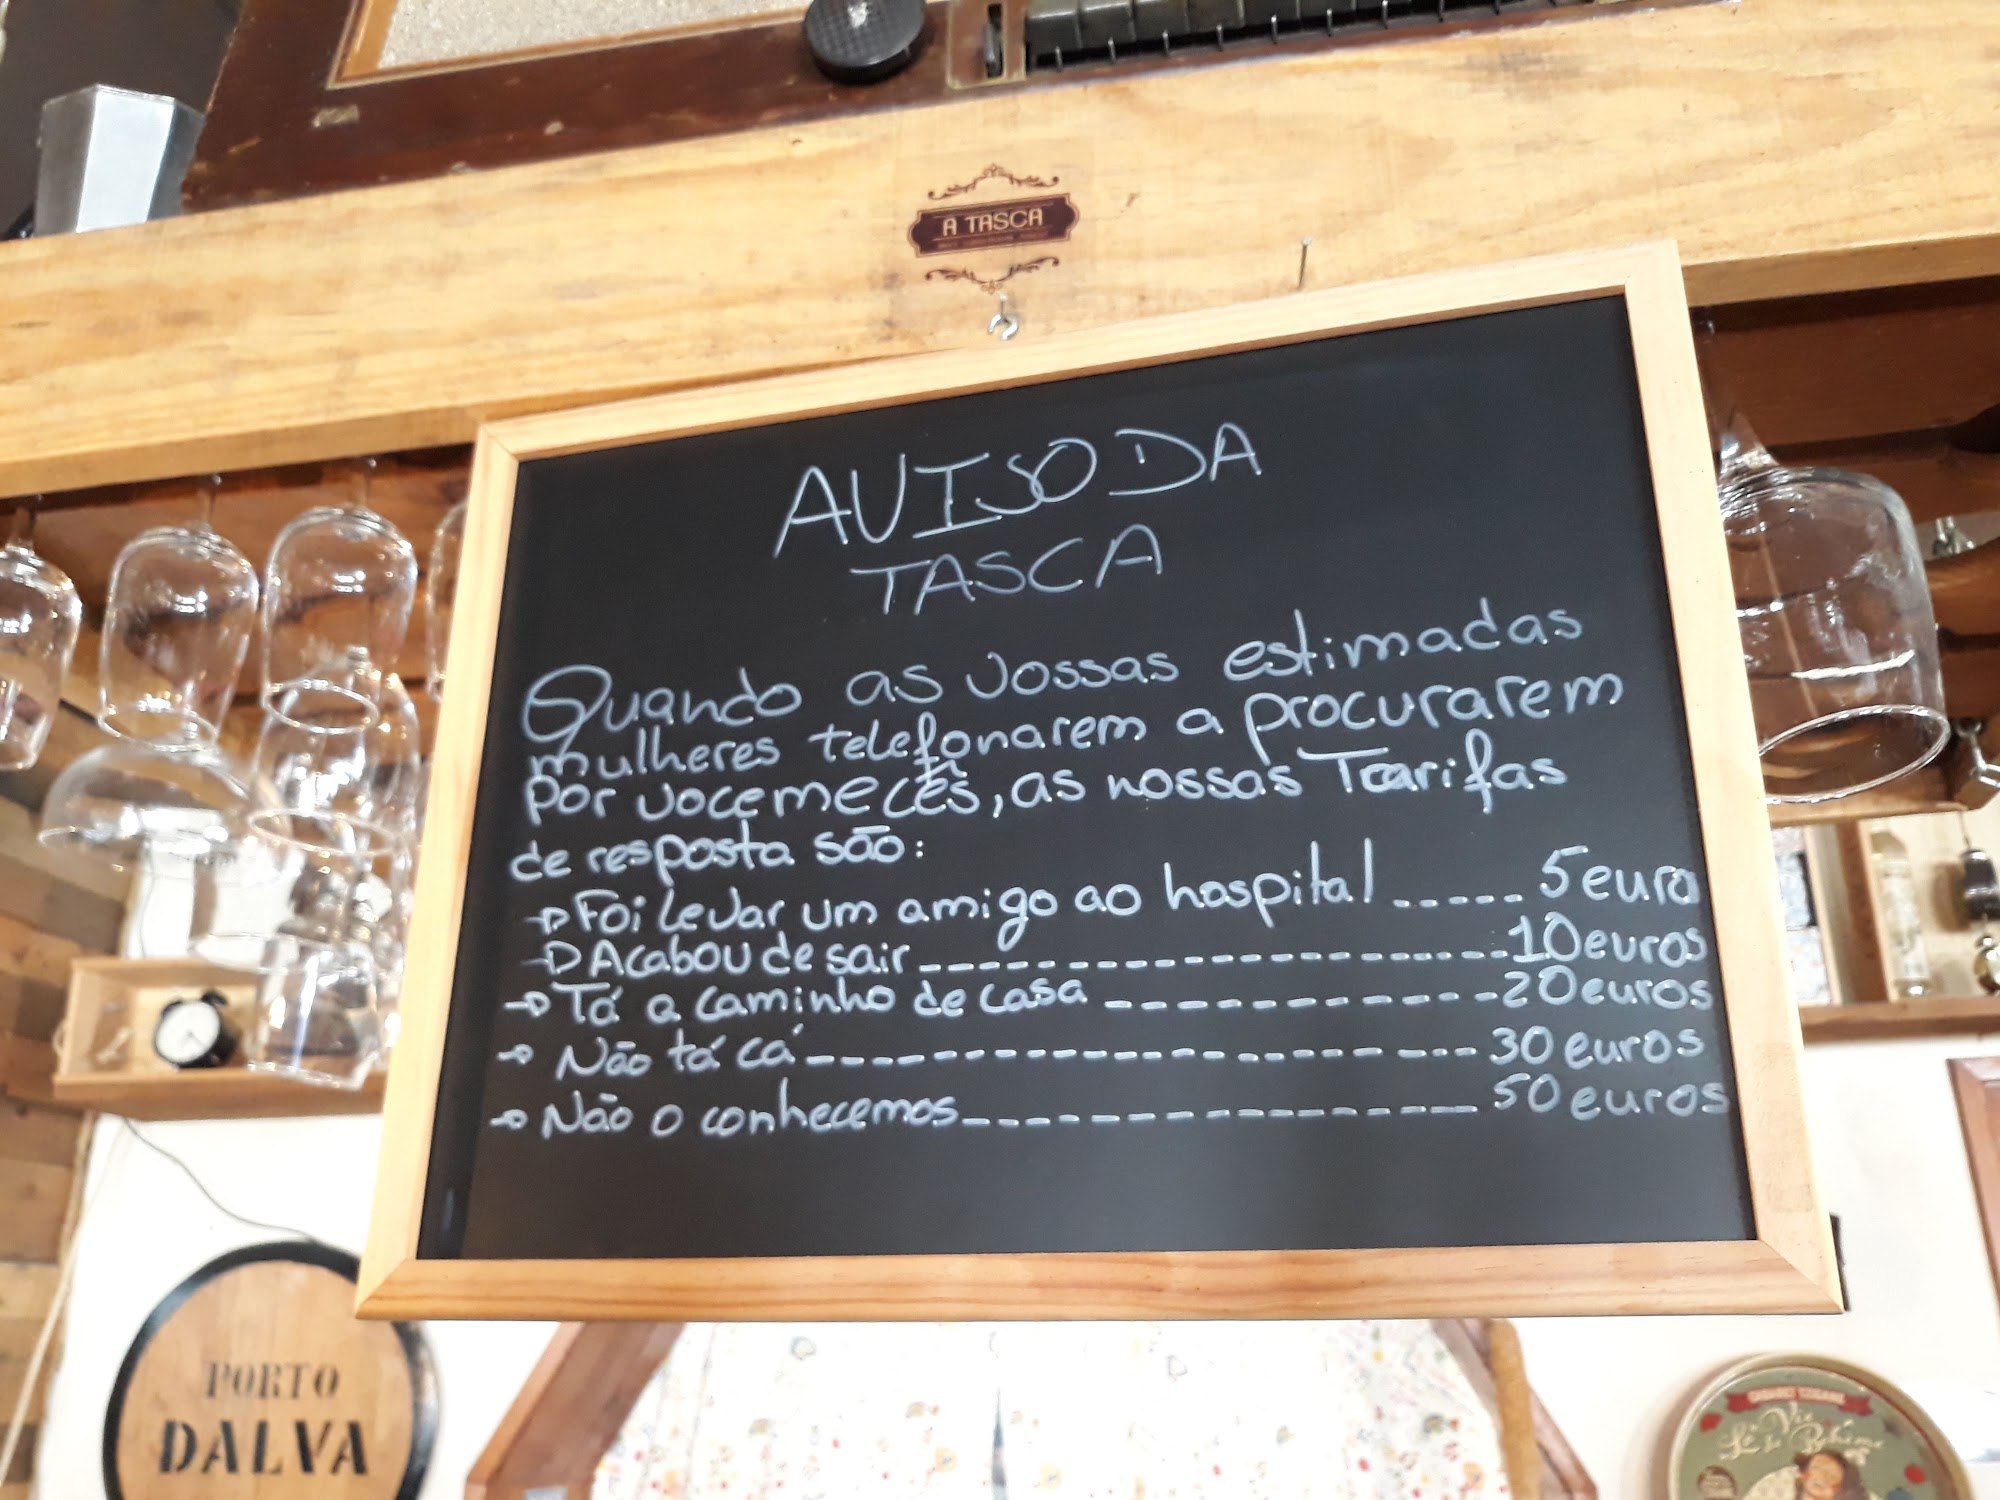 A TASCA
AVISO DA
TASCA
Quando as vossas estimadas
mulheres telefonarem a procurarem
por vocemecês, as nossas Tarifas
de resposta são:
→ Foi levar um amigo ao hospital ..... 5 euro
→ Acabou de sair -------------------- 10 euros
→ Tá a caminho de casa ------------ 20 euros
→ Não tá cá -------------------- 30 euros
→ Não o conhecemos ---------------- 50 euros
PORTO
DALVA
La Vie
de Bohème